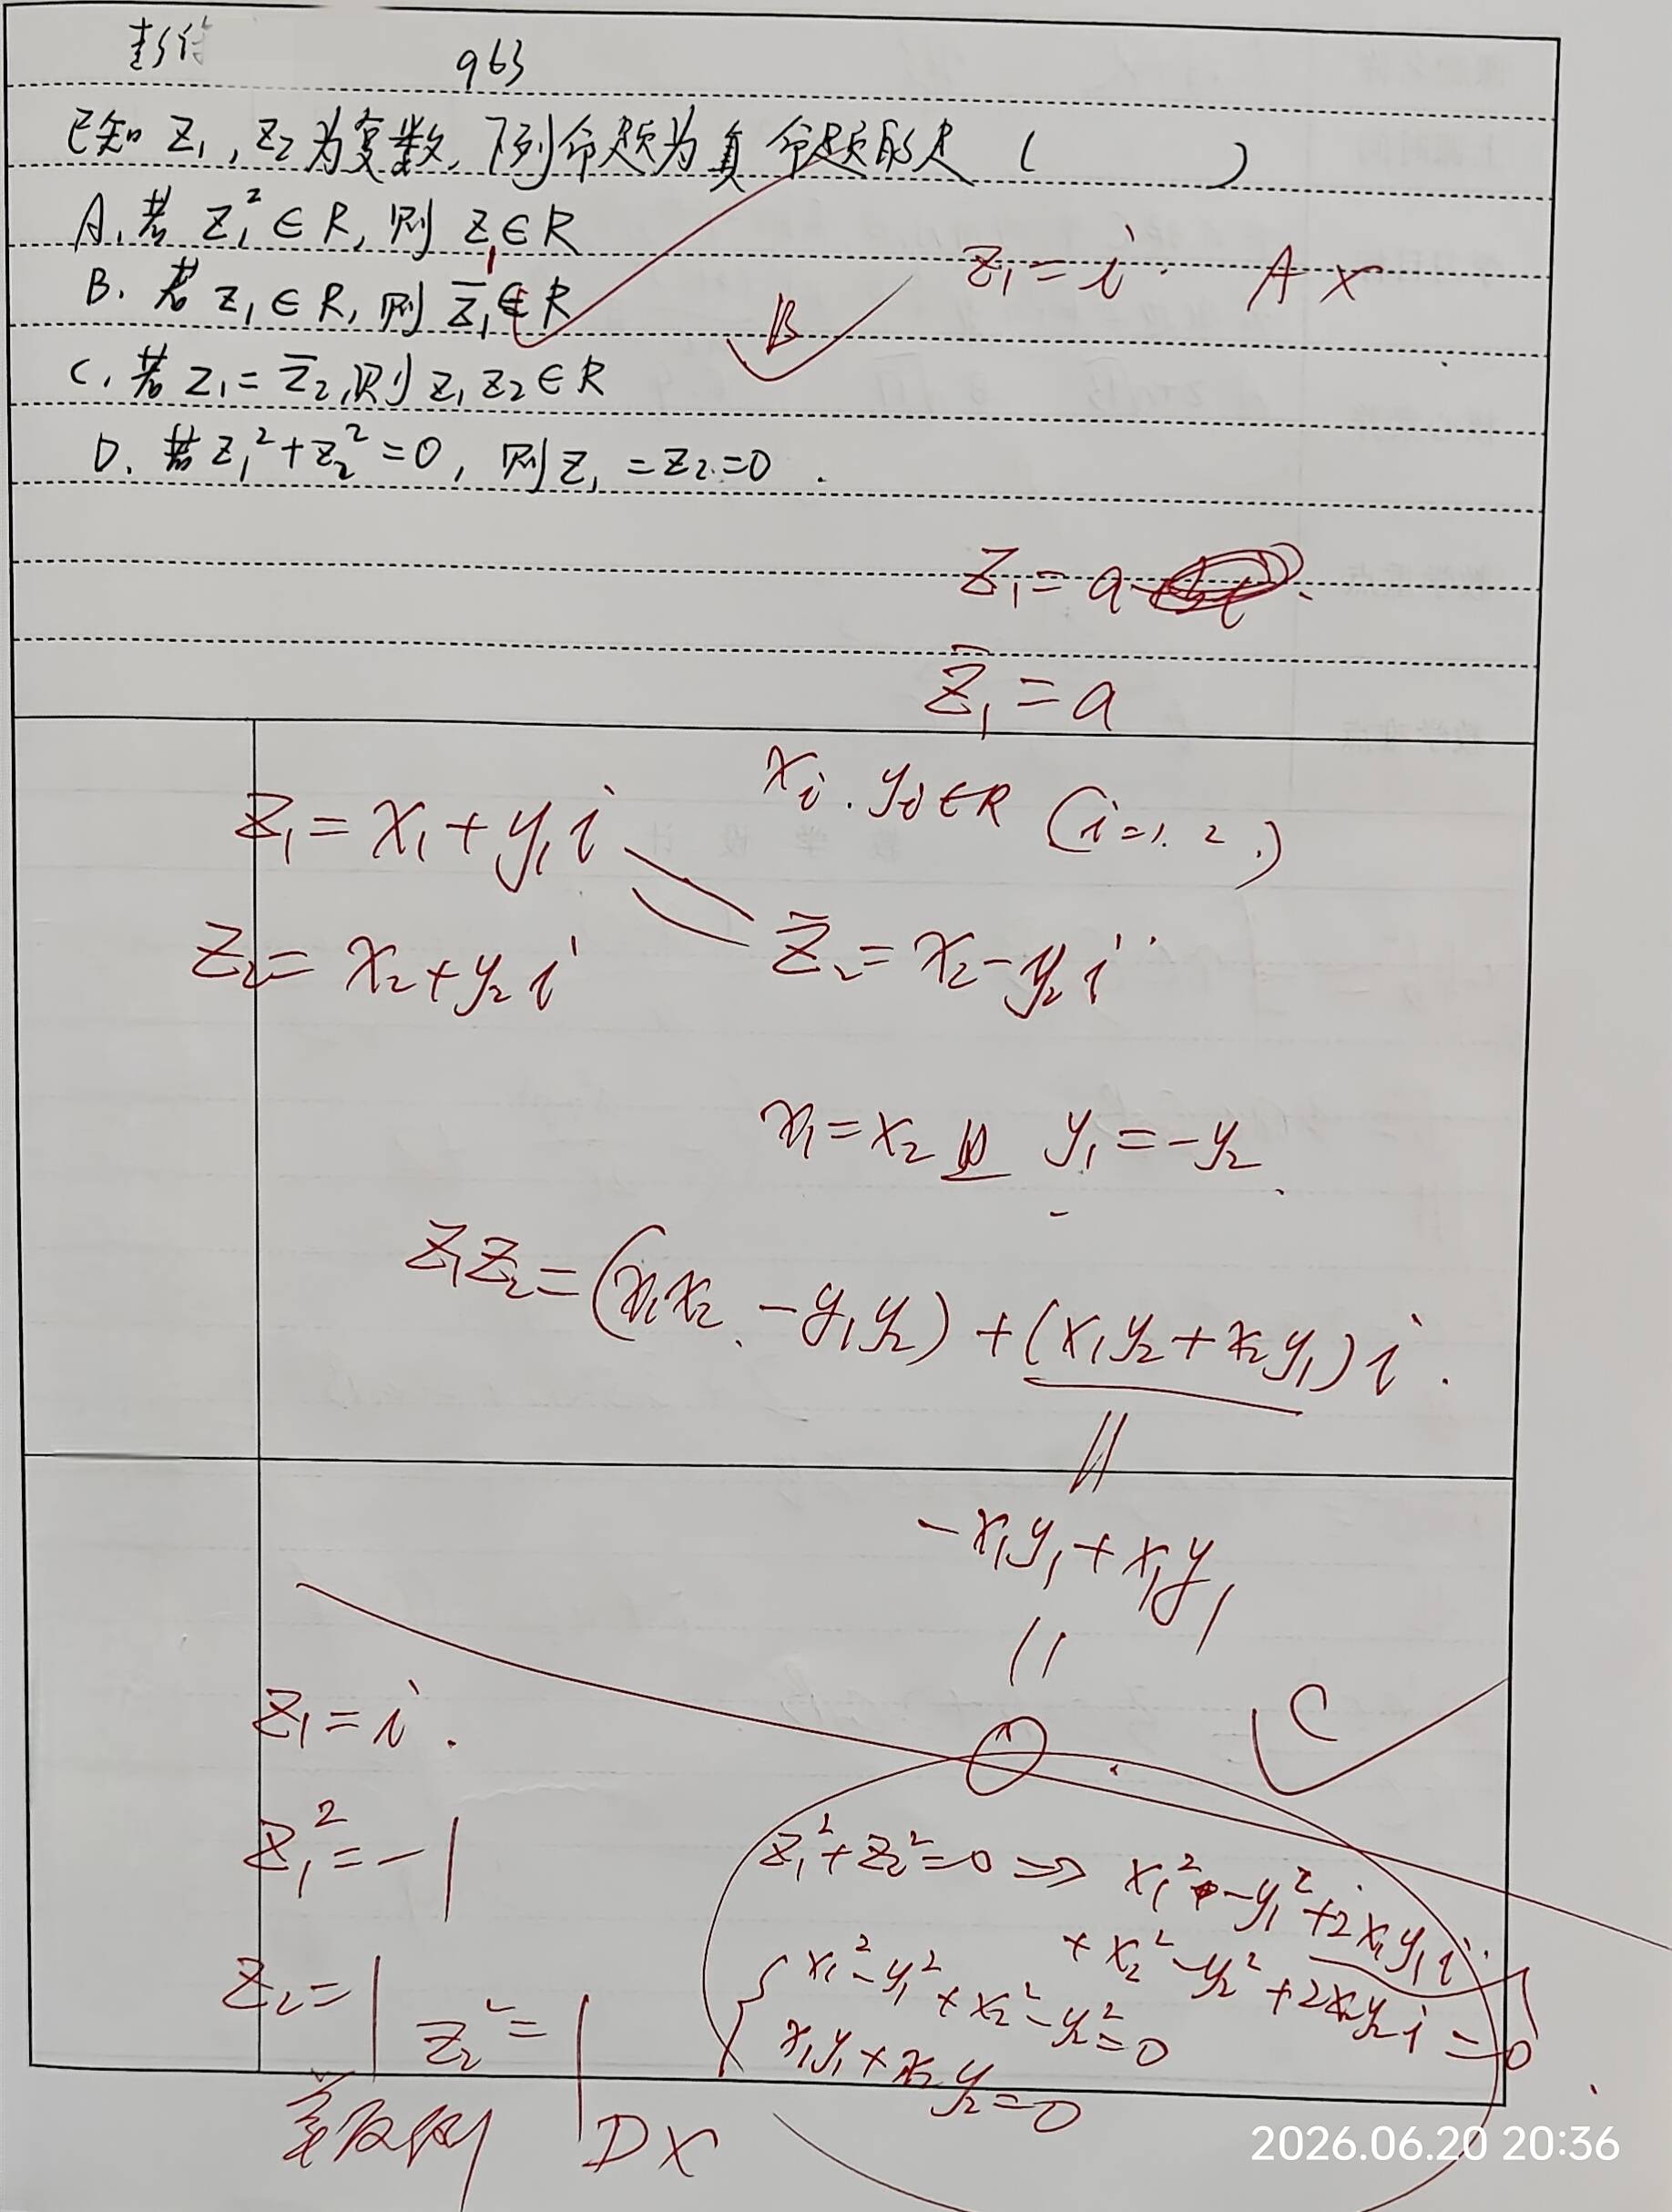 963
已知 z₁, z₂ 为复数, 下列命题为真命题的是 ( )
A. 若 z₁² ∈ R, 则 z₁ ∈ R
B. 若 z₁ ∈ R, 则 z̄₁ ∈ R
C. 若 z₁ = z̄₂, 则 z₁ z₂ ∈ R
D. 若 z₁² + z₂² = 0, 则 z₁ = z₂ = 0.
z₁ = i. A ×
B
z₁ = a
z̄₁ = a
xᵢ, yᵢ ∈ R (i = 1, 2.)
z₁ = x₁ + y₁ i
z₂ = x₂ + y₂ i
z̄₂ = x₂ - y₂ i
x₁ = x₂ 且 y₁ = -y₂
z₁z₂ = (x₁x₂ - y₁y₂) + (x₁y₂ + x₂y₁) i.
||
-x₁y₁ + x₁y₁
||
0
C
z₁ = i.
z₁² = -1
z₂ = 1 z₂² = 1
举反例 D ×
z₁² + z₂² = 0 ⇒ x₁² - y₁² + 2x₁y₁i
+ x₂² - y₂² + 2x₂y₂i = 0
{ x₁² - y₁² + x₂² - y₂² = 0
x₁y₁ + x₂y₂ = 0
2026.06.20 20:36